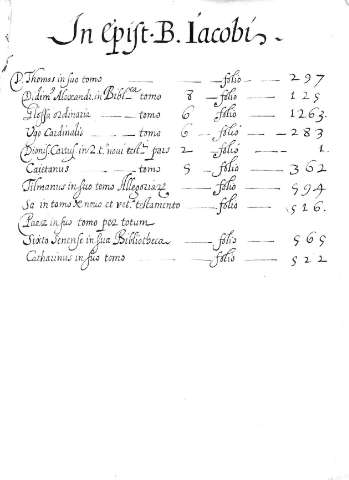 In Epist. B. Iacobi.
D. Thomas in suo tomo folio 297
tomo 8 folio 125
Glossa ordinaria tomo 6 folio 1263.
Ugo Cardinalis tomo 6 folio 283
Dionis. Cartus. in 2. t. noui test. pars 2 folio 1.
Caietanus tomo 5 folio 362
Titlmanus in suo tomo folio 594
Sa in tomo et vet. testamento folio 516.
Paez in suo tomo per totum
Sixto Senense in sua Bibliotheca folio 565
Catharinus in suo tomo folio 522